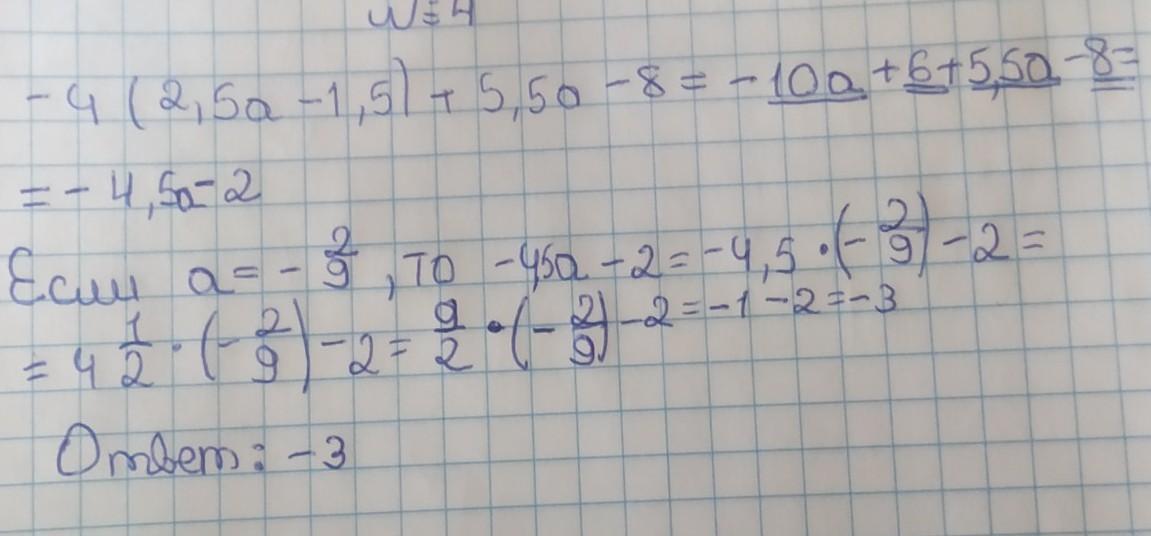 №4
-4(2,5a-1,5)+5,5a-8=-10a+6+5,5a-8=
=-4,5a-2
Если a=-2/9, то -4,5a-2=-4,5·(-2/9)-2=
=4 1/2·(-2/9)-2=9/2·(-2/9)-2=-1-2=-3
Ответ: -3